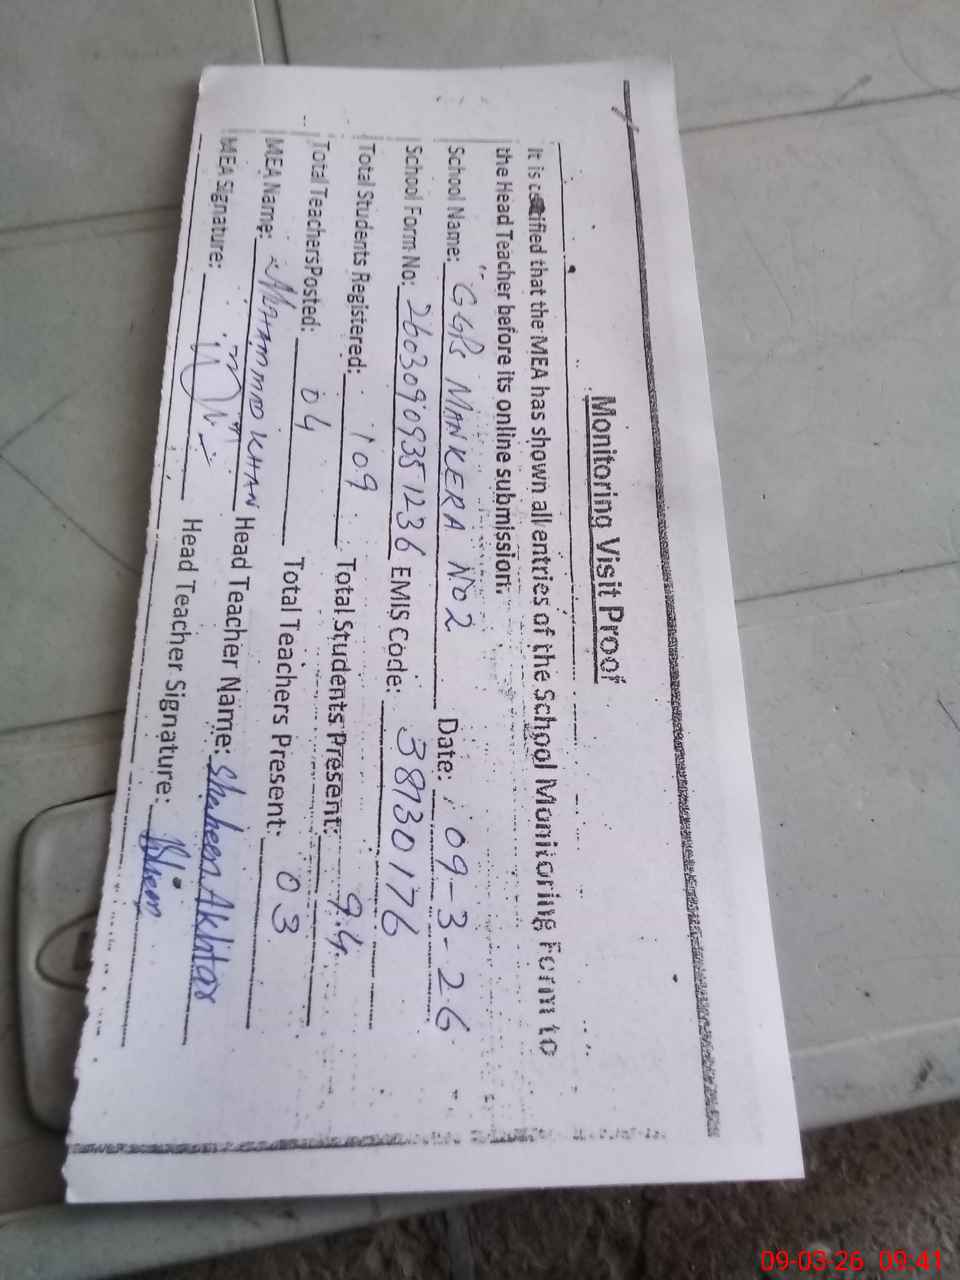 Monitoring Visit Proof
It is certified that the MEA has shown all entries of the School Monitoring Form to
the Head Teacher before its online submission.
School Name: GGPS MANKERA NO2 Date: 09-3-26
School Form No: 26030909351236 EMIS Code: 38130176
Total Students Registered: 109 Total Students Present: 94
Total TeachersPosted: 04 Total Teachers Present: 03
MEA Name: MUHAMMAD KHAN Head Teacher Name: Shaheen Akhtar
MEA Signature: Head Teacher Signature:
09-03-26 09:41